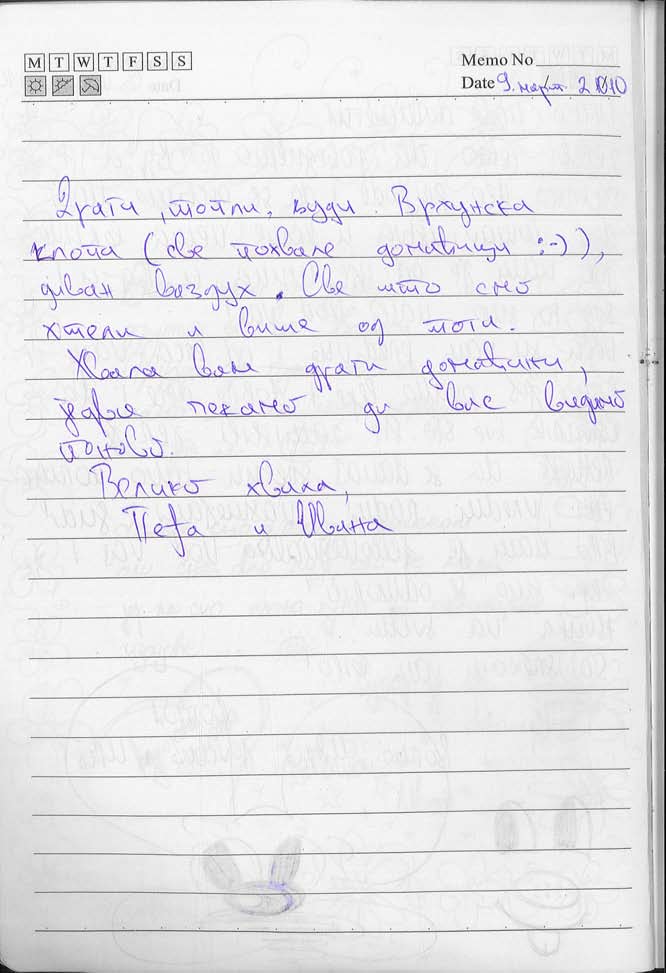 M T W T F S S
Memo No
Date 9. март 2010
Драги, топли, људи. Врхунска
клопа (све похвале домаћици :-)),
диван ваздух. Све што смо
хтели и више од тога.
Хвала вам драги домаћини,
једва чекамо да вас видимо
поново.
Велико хвала,
Пеђа и Ивана